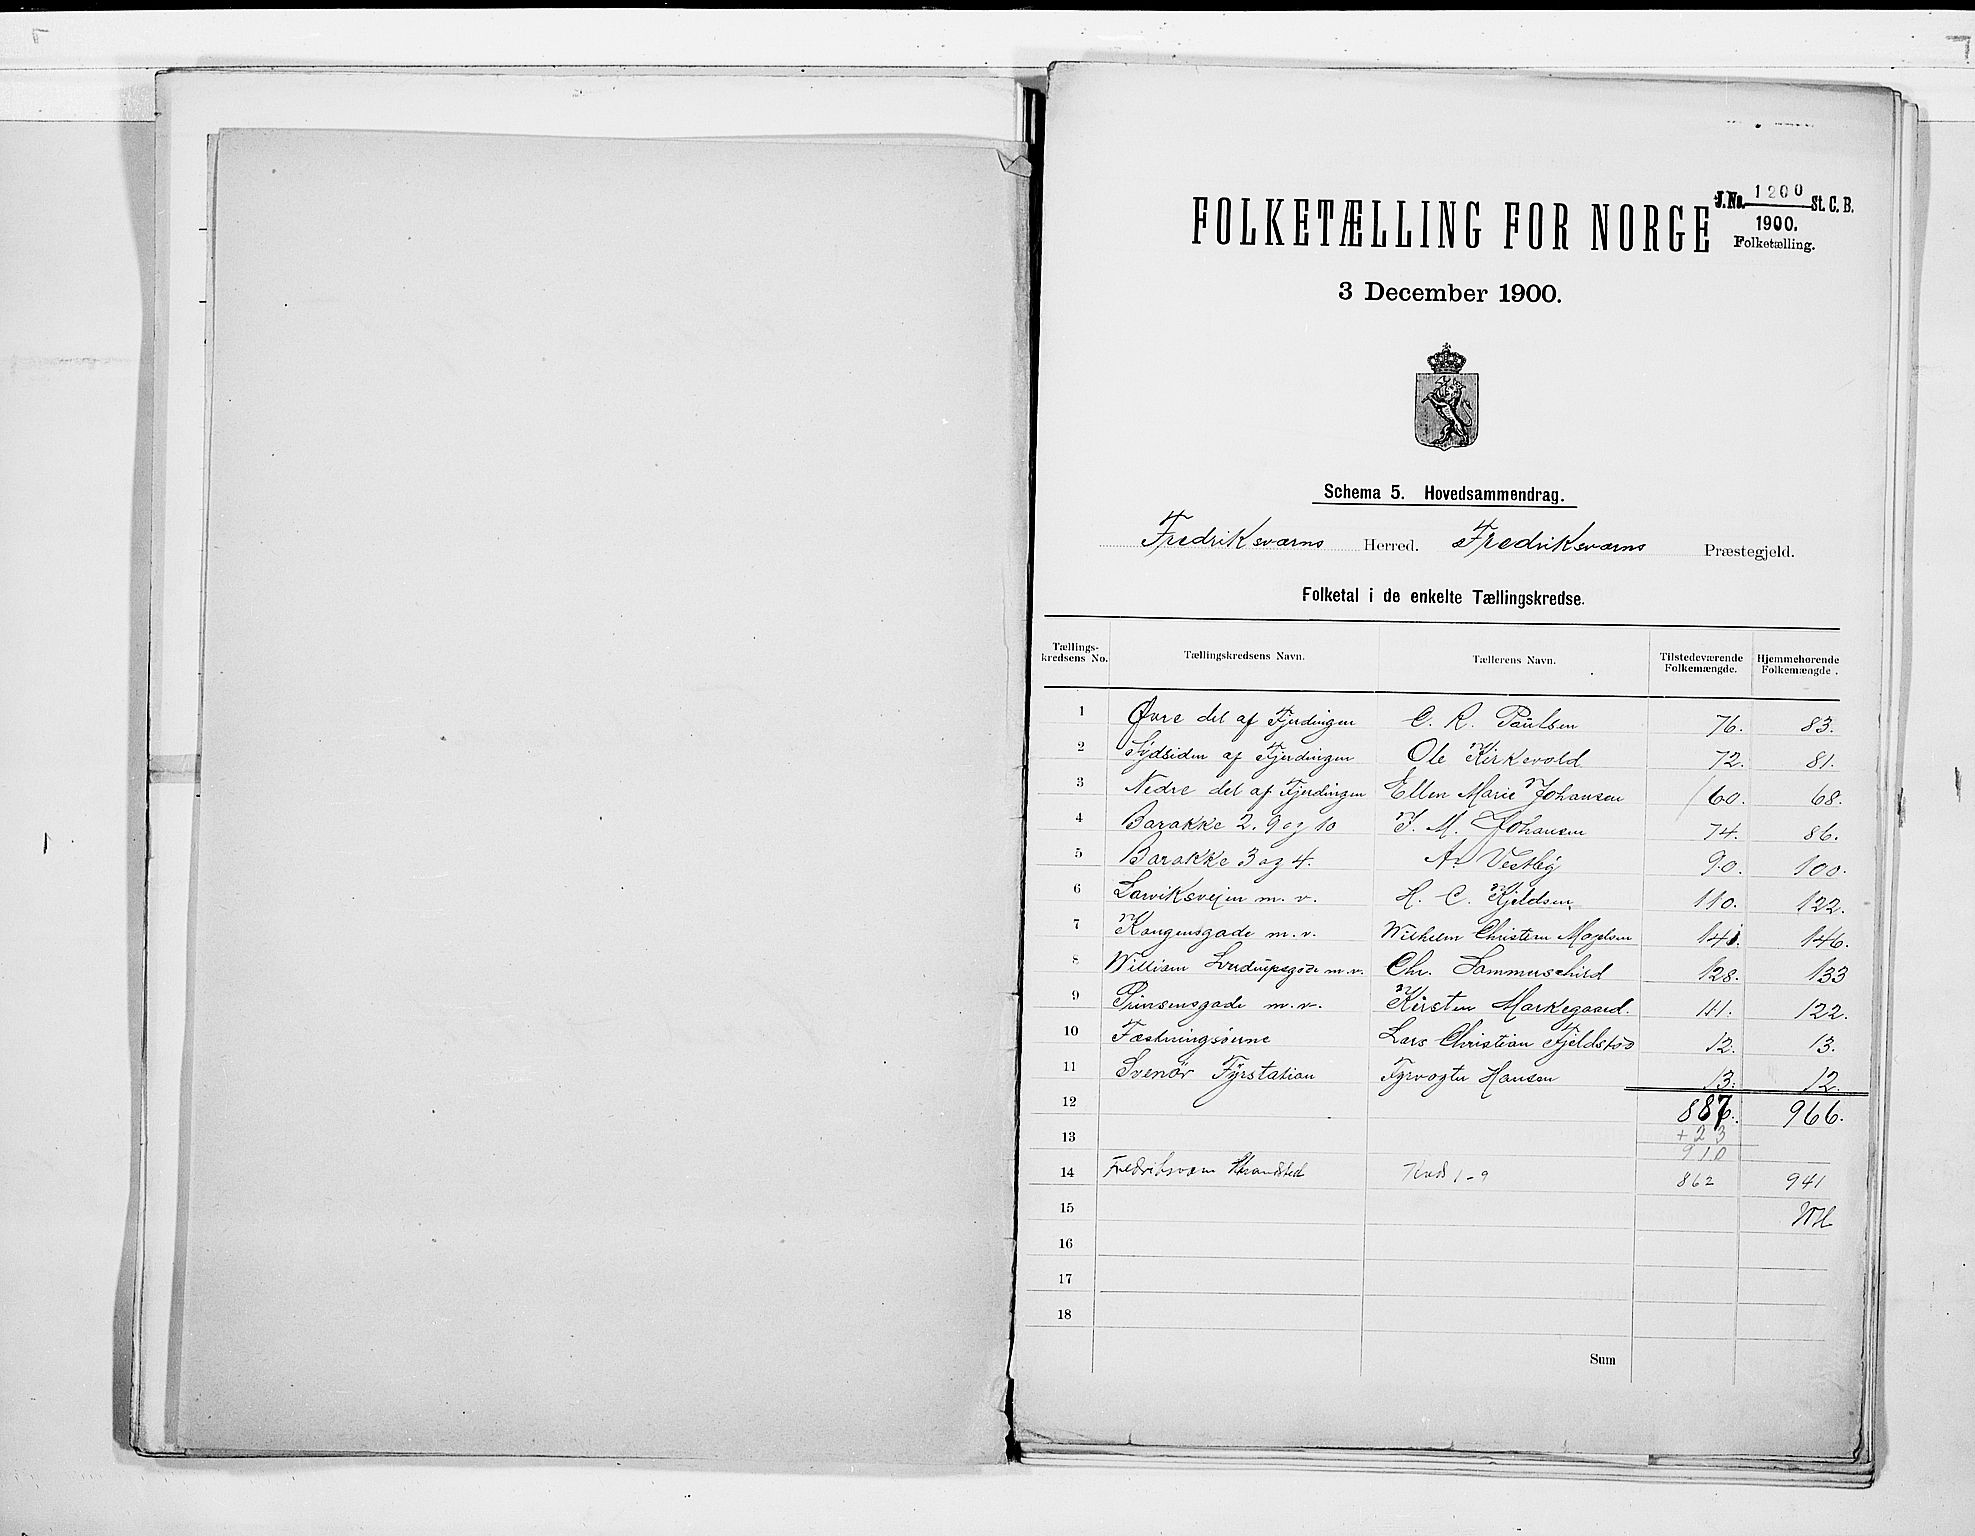 FOLKETÆLLING FOR NORGE
J.No. 1200 St. C. B.
1900.
Folketælling.
3 December 1900.
Schema 5. Hovedsammendrag.
Fredriksværns Herred. Fredriksværns Præstegjeld.
Folketal i de enkelte Tællingskredse.
Tællings-kredsens No. Tællingskredsens Navn. Tællerens Navn. Tilstedeværende Folkemængde. Hjemmehørende Folkemængde.
1 Øvre del af Fjerdingen C. R. Paulsen 76. 83.
2 Sydsiden af Fjerdingen Ole Kirkevold 72. 81.
3 Nedre del af Fjerdingen Ellen Marie Johansen 60. 68.
4 Barakke 2. 9 og 10 J. M. Johansen 74. 86.
5 Barakke 3 og 4. A. Vestby 90. 100.
6 Larviksvejen m. v. H. C. Kjeldsen 110. 122.
7 Kongensgade m. v. Wilhelm Christian 141. 146.
8 William m. v. Chr. Sommerschild 128. 133
9 Prinsensgade m. v. Kirsten Markegaard. 111. 122.
10 Fæstningsøerne Lars Christian Fjeldstød 12. 13.
11 Svenør Fyrstation Fyrvogter Hansen 13. 12.
12 887. 966.
13 + 23
910
14 Fredriksværn Strandsted Kreds 1-9 862 941
15 WH
16
17
18
Sum